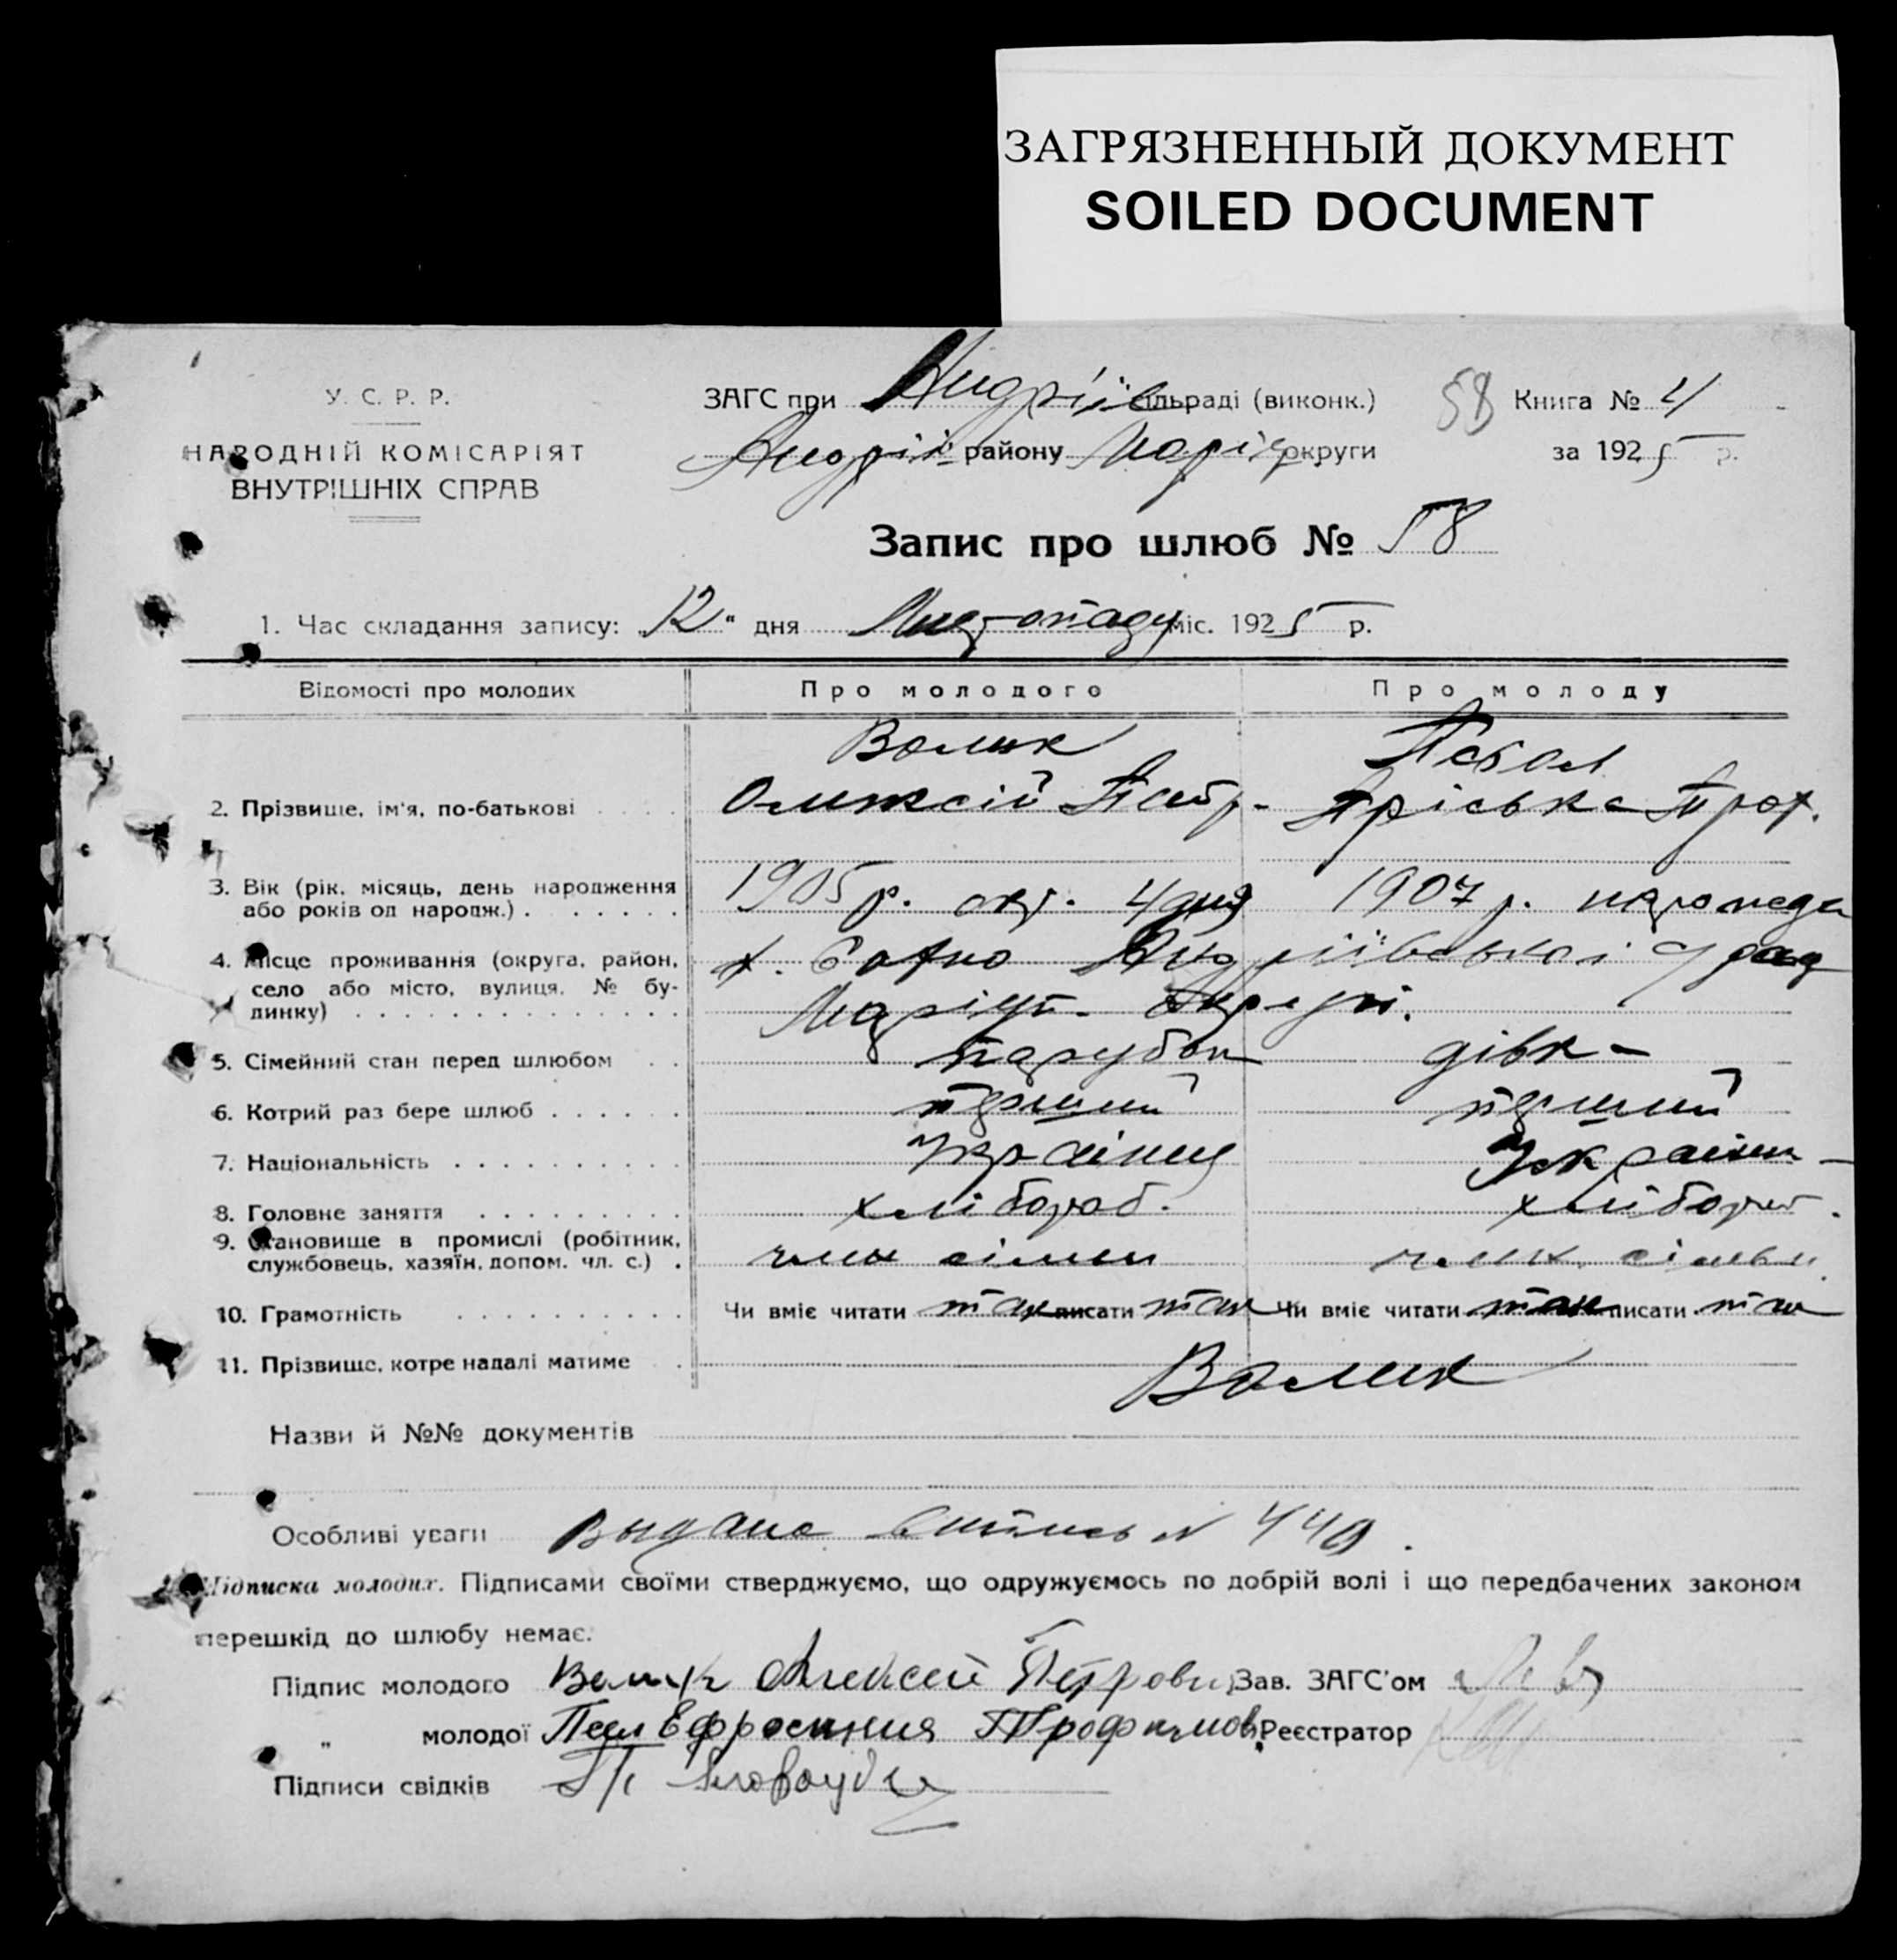 ЗАГРЯЗНЕННЫЙ ДОКУМЕНТ
SOILED DOCUMENT
У. С. Р. Р.
НАРОДНІЙ КОМІСАРІЯТ
ВНУТРІШНІХ СПРАВ
ЗАГС при Андріїв сільраді (виконк.)
Андрії району Маріуп округи
58 Книга № 4
за 1925 р.
Запис про шлюб № 58
1. Час складання запису: „12" дня Листопаду міс. 1925 р.
Відомості про молодих Про молодого Про молоду
Волик
2. Прізвище, ім'я, по-батькові Олексій Петр. Пріська Троф.
3. Вік (рік, місяць, день народження або років од народж.) 1905 р. окт. 4 дня 1907 р.
4. Місце проживання (округа, район, село або місто, вулиця, № будинку) х. Андріївської Маріуп. Округи.
5. Сімейний стан перед шлюбом парубок дівка
6. Котрий раз бере шлюб перший перший
7. Національність Українец Українка
8. Головне заняття хлібороб. хлібороб.
9. Становище в промислі (робітник, службовець, хазяїн, допом. чл. с.) член сімьи член сімьи
10. Грамотність Чи вміє читати так писати так Чи вміє читати так писати так
11. Прізвище, котре надалі матиме Волик
Назви й №№ документів
Особливі уваги Выдана выпись № 449.
Підписка молодих. Підписами своїми стверджуємо, що одружуємось по добрій волі і що передбачених законом
перешкід до шлюбу немає.
Підпис молодого Волик Алексей Петрович Зав. ЗАГС'ом
„ молодої Ефросиния Трофимов. Реєстратор
Підписи свідків